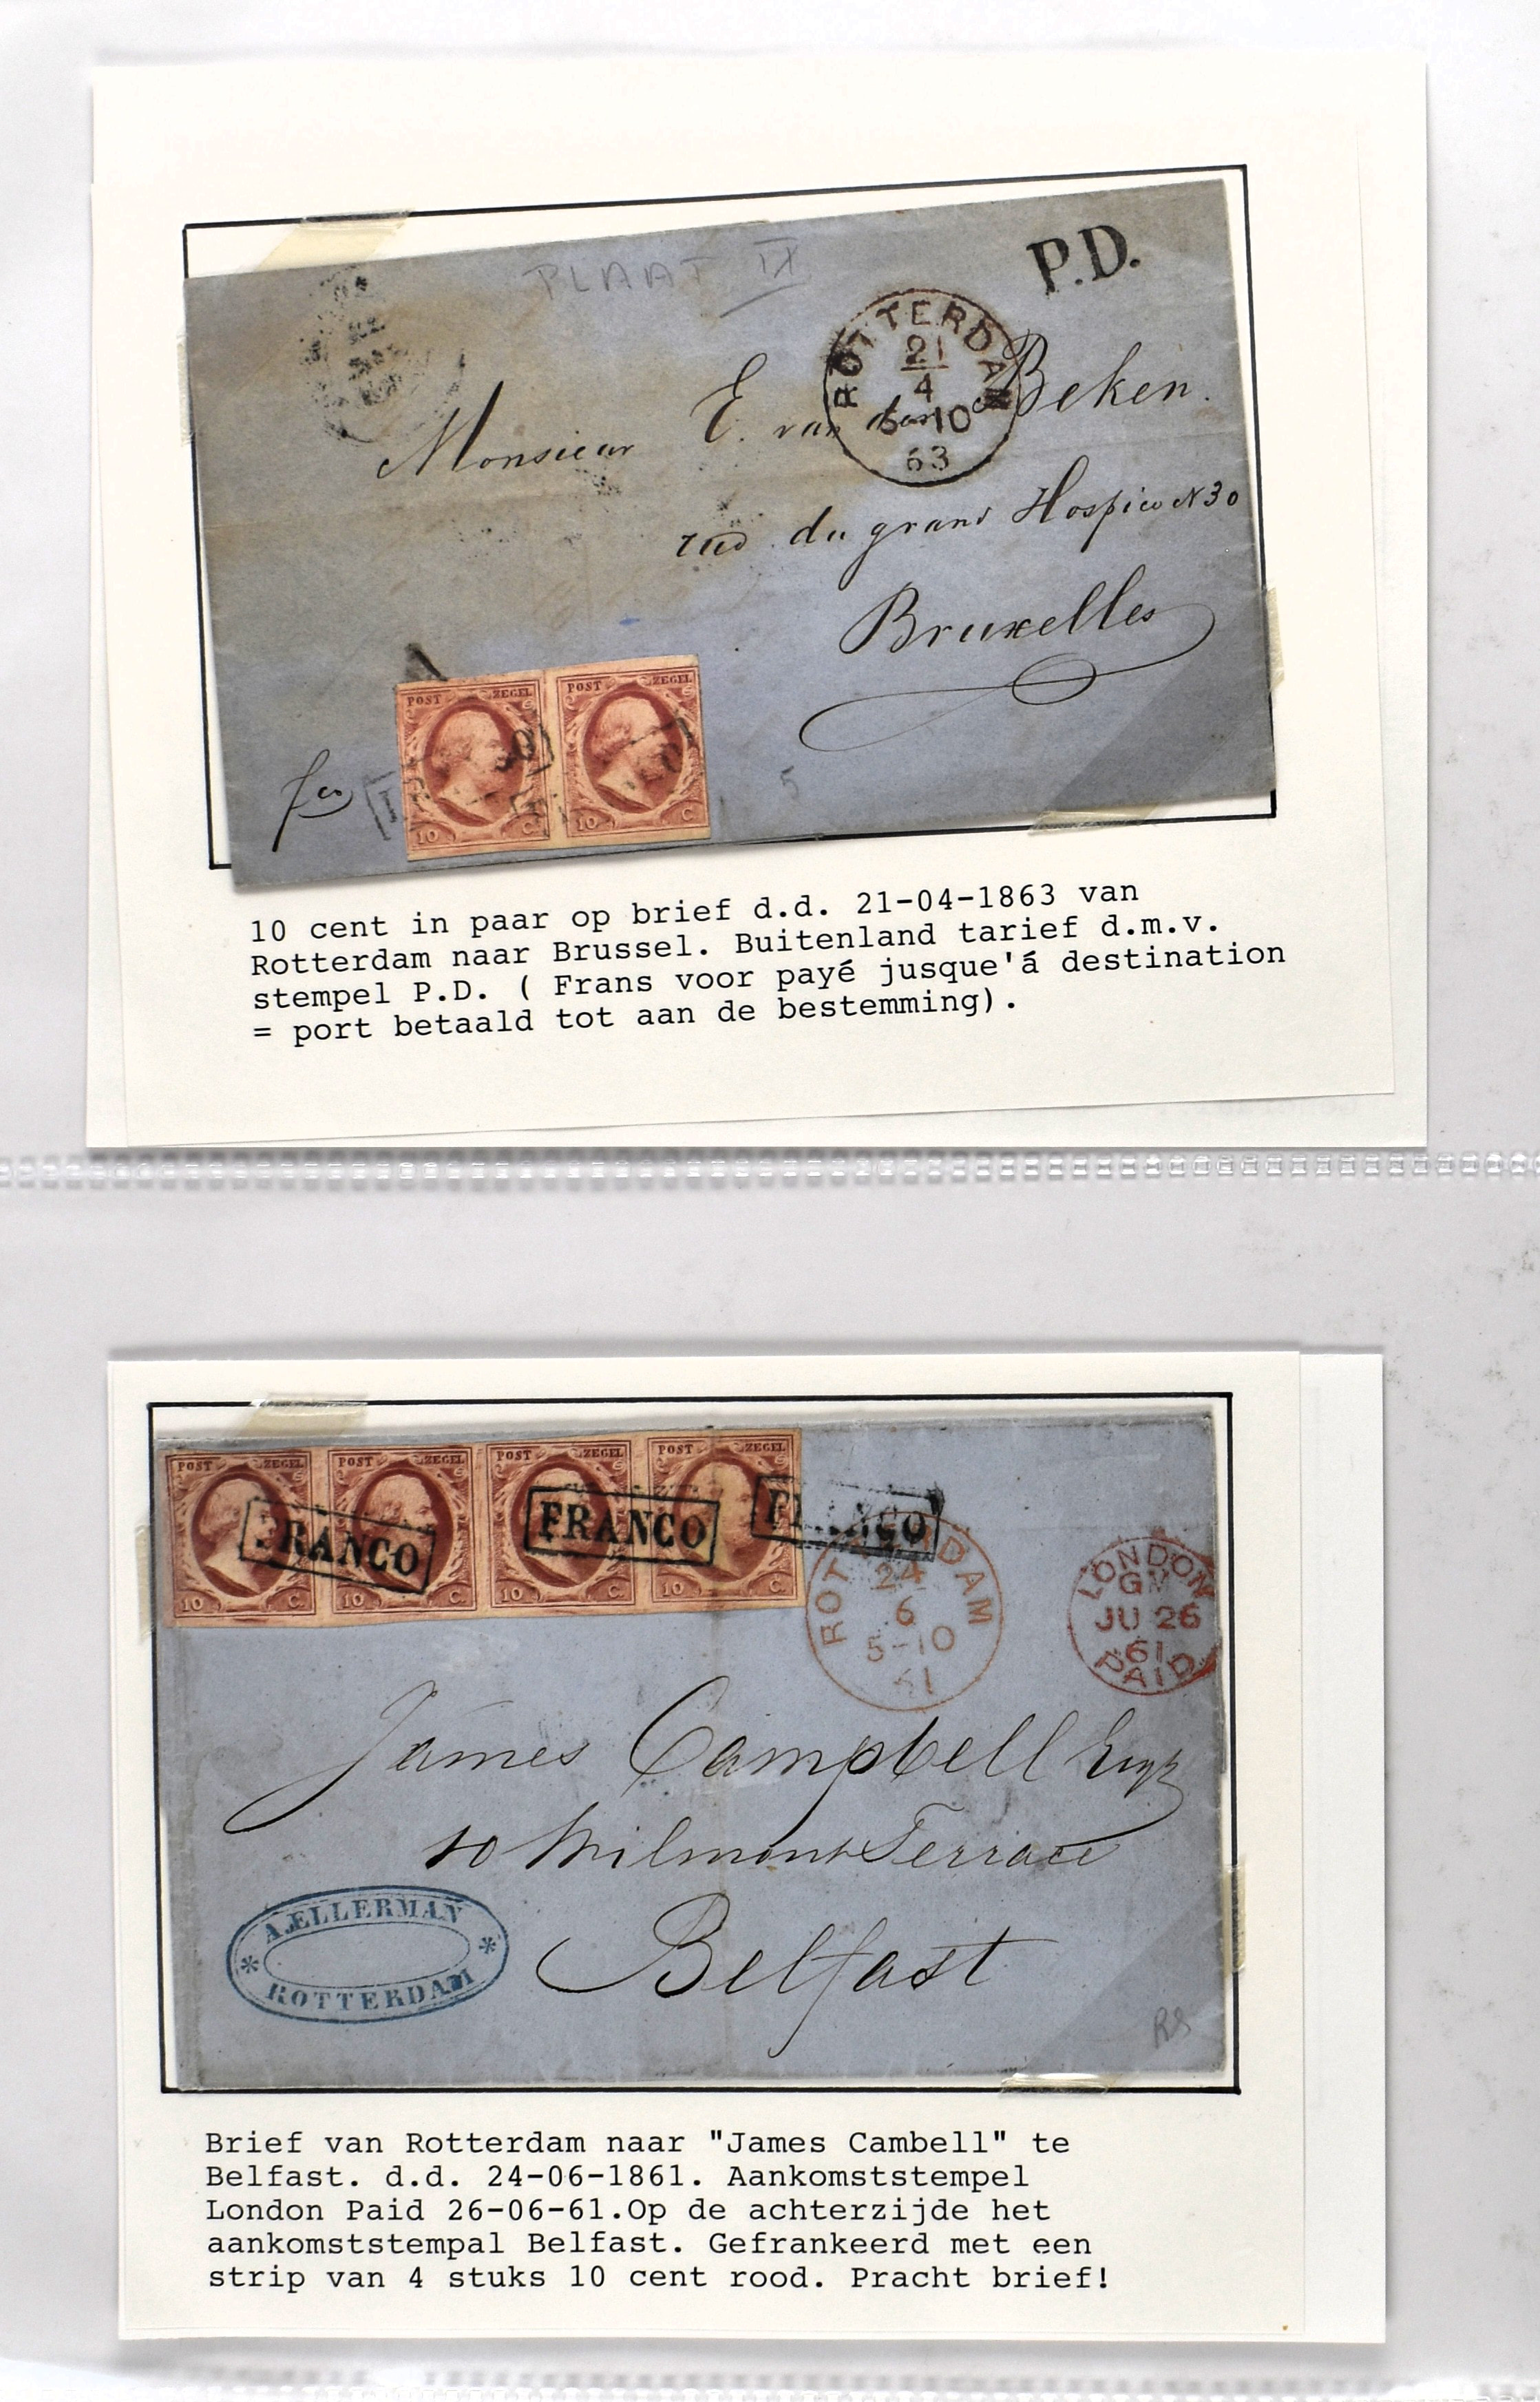 PLAAT IX
P.D.
ROTTERDAM
21
4
6-10
63
Monsieur E. van den Beken.
rue du grand Hospice N 30
Bruxelles
fco
POST ZEGEL
10 C.
POST ZEGEL
10 C.
5
10 cent in paar op brief d.d. 21-04-1863 van
Rotterdam naar Brussel. Buitenland tarief d.m.v.
stempel P.D. ( Frans voor payé jusque'á destination
= port betaald tot aan de bestemming).
POST ZEGEL
10 C.
POST ZEGEL
10 C.
POST ZEGEL
10 C.
POST ZEGEL
10 C.
FRANCO
FRANCO
FRANCO
ROTTERDAM
24
6
5-10
61
LONDON
JU 26
61
PAID
James Campbell Esqr
10 Wilmont Terrace
Belfast
A.ELLERMAN
ROTTERDAM
RS
Brief van Rotterdam naar "James Cambell" te
Belfast. d.d. 24-06-1861. Aankomststempel
London Paid 26-06-61.Op de achterzijde het
aankomststempal Belfast. Gefrankeerd met een
strip van 4 stuks 10 cent rood. Pracht brief!